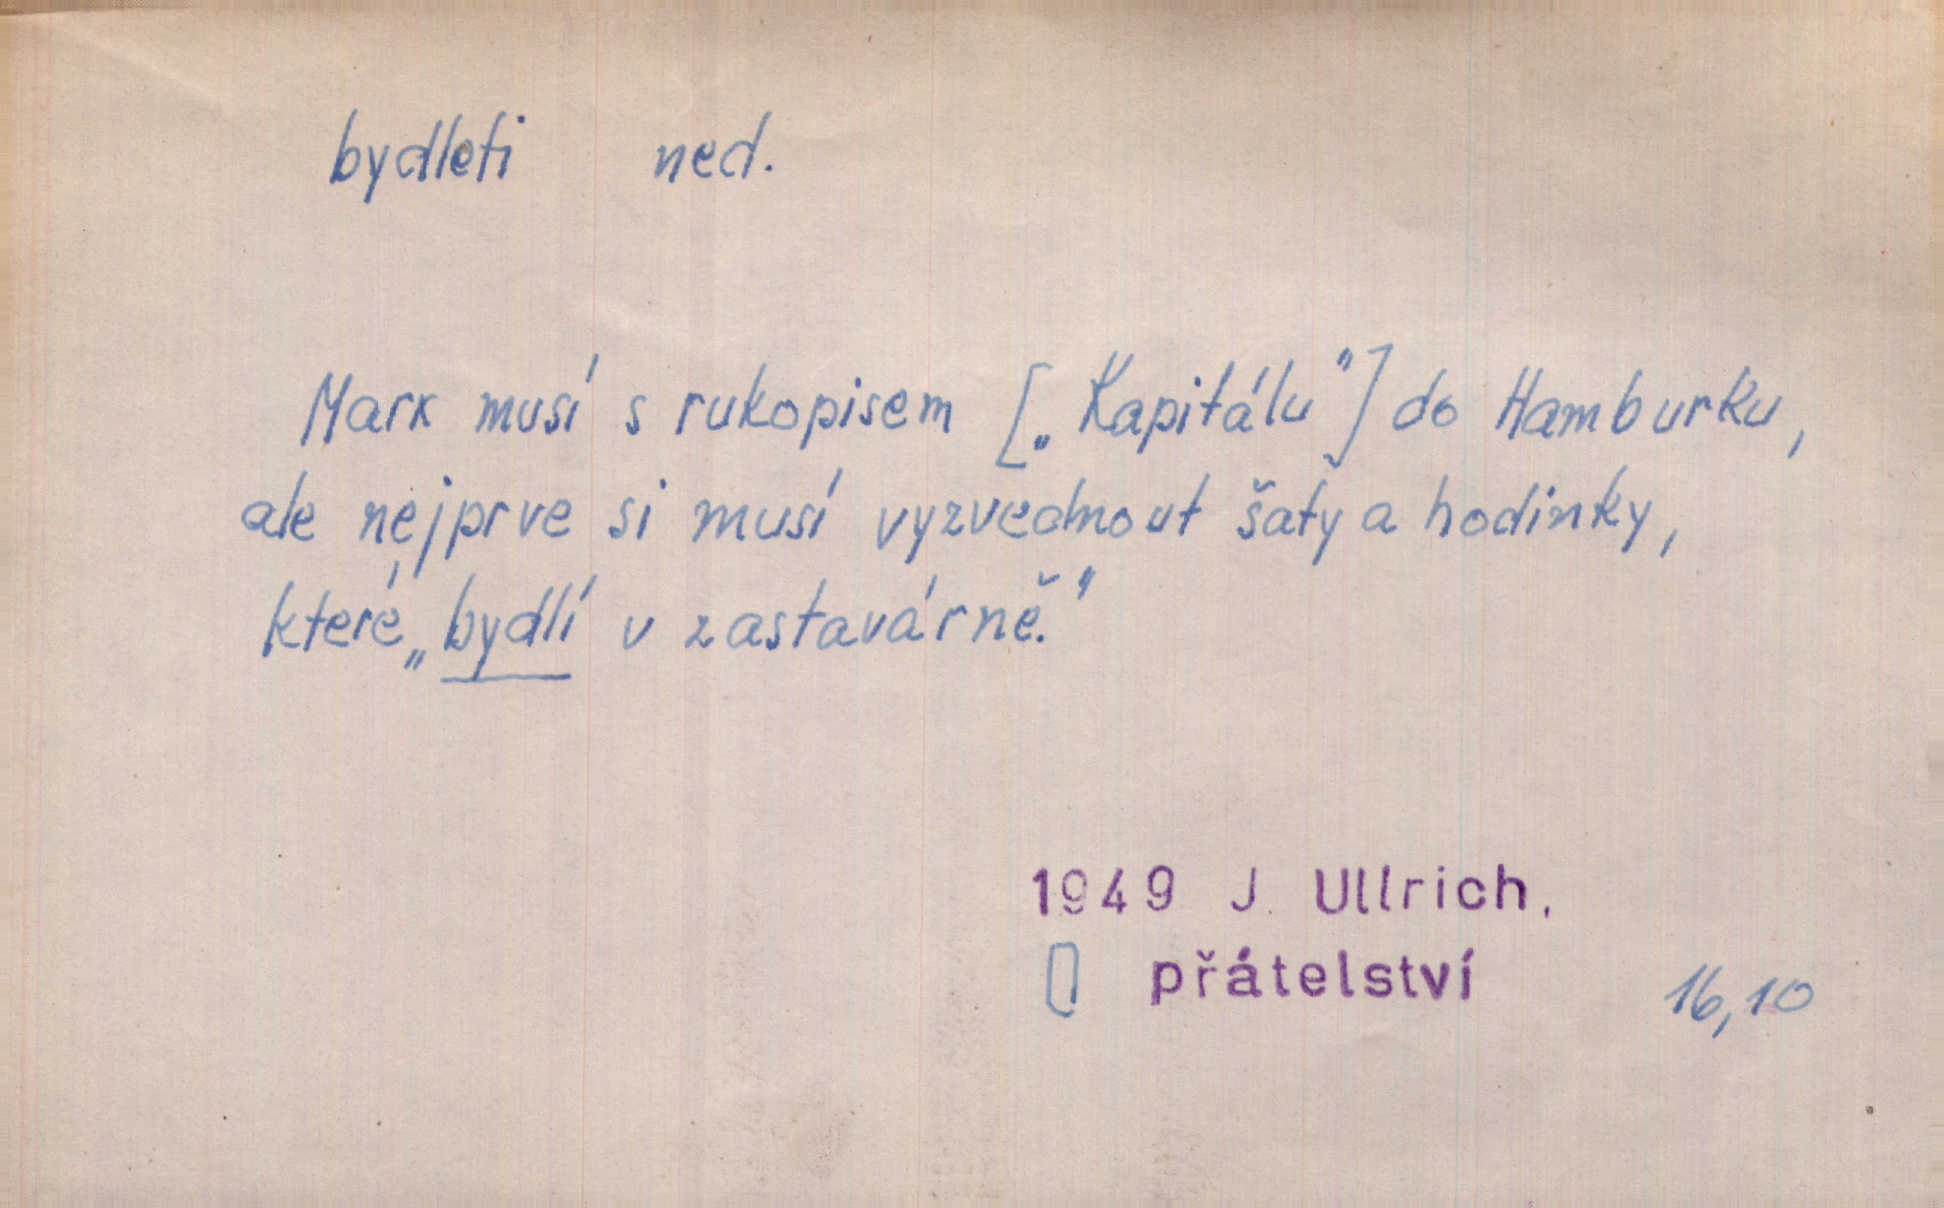 bydleti ned.
Marx musí s rukopisem [„Kapitálu"] do Hamburku,
ale nejprve si musí vyzvednout šaty a hodinky,
které „bydlí v zastavárně."
1949 J. Ullrich,
přátelství 16,10